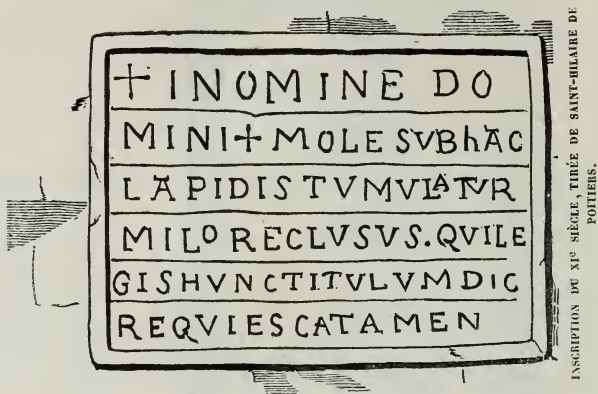 + INOMINE DO
MINI + MOLE SVB hAC
LAPIDIS TVMVLATVR
MILO RECLVSVS. QVILE
GISHVNCTITVLVMDIC
REQVIESCATAMEN
INSCRIPTION DU XIe SIÈCLE, TIRÉE DE SAINT-HILAIRE DE
POITIERS.